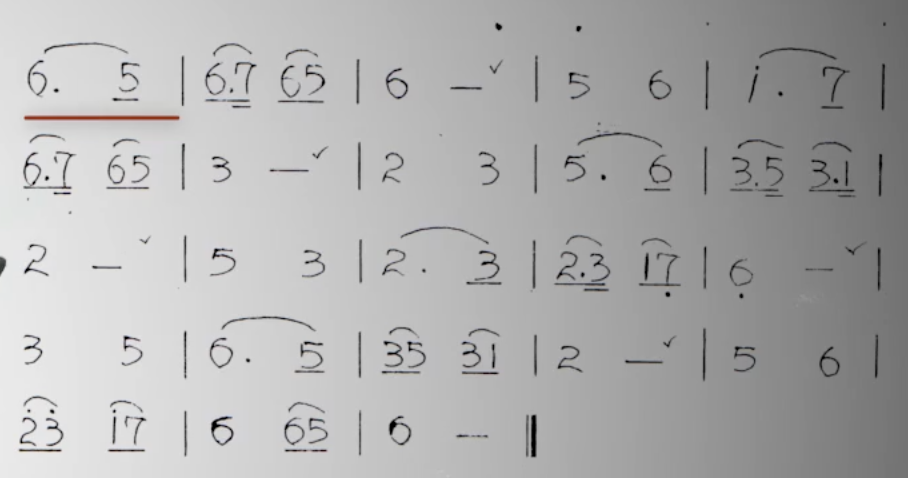 6. 5 | 6.7 65 | 6 — ✓ | 5 6 | i. 7 |
6.7 65 | 3 — ✓ | 2 3 | 5. 6 | 3.5 3.1 |
2 — ✓ | 5 3 | 2. 3 | 2.3 17̣ | 6̣ — ✓ |
3 5 | 6. 5 | 35 31 | 2 — ✓ | 5 6 |
2̇3̇ 1̇7 | 6 65 | 6 — ‖